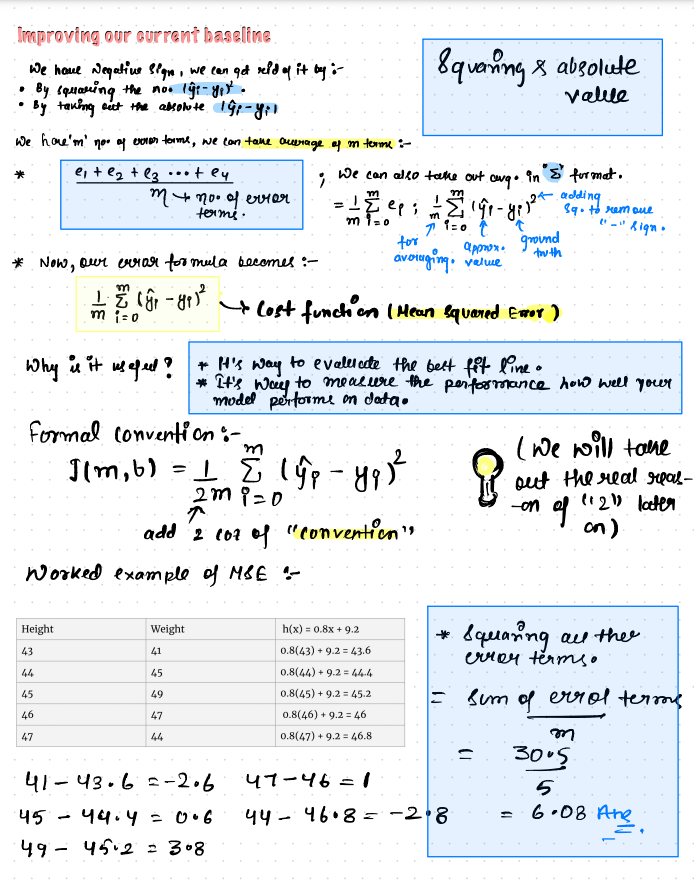 Improving our current baseline
We have Negative Sign, we can get reid of it by :-
• By squaring the no. (ŷi - yi)².
• By taking out the absolute |ŷi - yi|
Squaring & absolute
value
We have 'm' no. of error terms, we can take average of m terms :-
* e₁ + e₂ + e₃ ... + e₄
m → no. of error
terms.
; We can also take out avg. in "Σ" format.
= 1/m Σ(i=0 to m) ei ; 1/m Σ(i=0 to m) (ŷi - yi)² ← adding
sq. to remove
"-" sign.
for
averaging.
approx.
value
ground
truth
* Now, our error formula becomes :-
1/m Σ(i=0 to m) (ŷi - yi)² → Cost function (Mean Squared Error)
Why is it useful?
* It's way to evaluate the best fit line.
* It's way to measure the performance how well your
model performs on data.
Formal convention :-
J(m,b) = 1/2m Σ(i=0 to m) (ŷi - yi)²
add 2 coz of "convention"
(We will take
out the real reas-
-on of "2" later
on)
Worked example of MSE :-
Height Weight h(x) = 0.8x + 9.2
43 41 0.8(43) + 9.2 = 43.6
44 45 0.8(44) + 9.2 = 44.4
45 49 0.8(45) + 9.2 = 45.2
46 47 0.8(46) + 9.2 = 46
47 44 0.8(47) + 9.2 = 46.8
41 - 43.6 = -2.6 47 - 46 = 1
45 - 44.4 = 0.6 44 - 46.8 = -2.8
49 - 45.2 = 3.8
* Squaring all ther
error terms.
= Sum of error terms
m
= 30.5
5
= 6.08 Ans